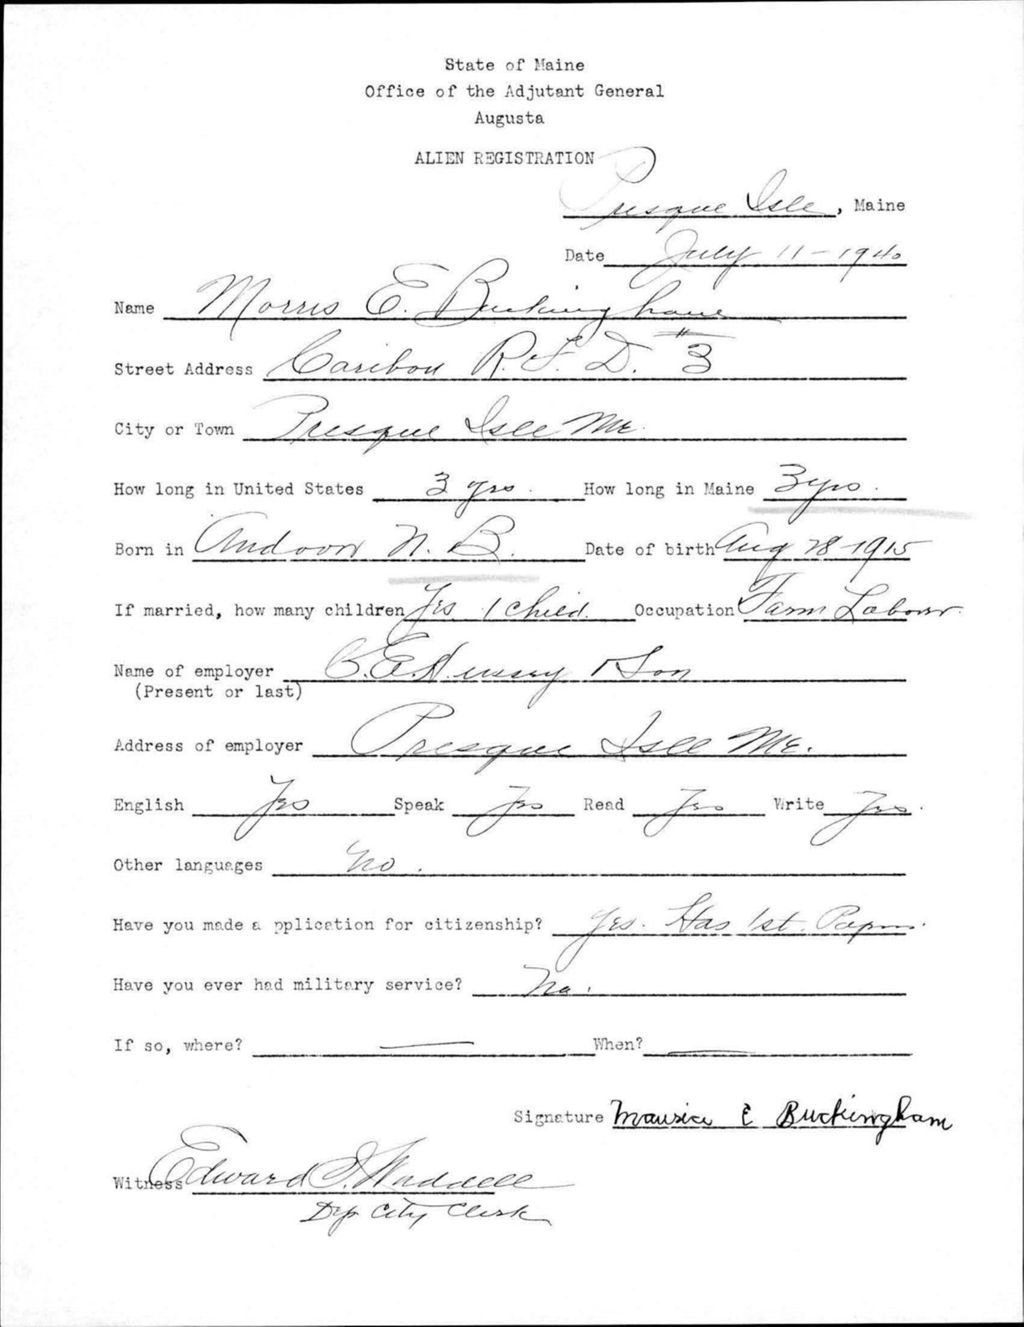 State of Maine
Office of the Adjutant General
Augusta
ALIEN REGISTRATION
Presque Isle, Maine
Date July 11-1940
Name Morris E. Buckingham
Street Address Caribou R.F.D. #3
City or Town Presque Isle Me.
How long in United States 3 yrs. How long in Maine 3 yrs.
Born in Andover N.B. Date of birth Aug 28-1915
If married, how many children Yes 1 child. Occupation Farm Laborer.
Name of employer C.E. Hussey & Son
(Present or last)
Address of employer Presque Isle Me.
English Yes Speak Yes Read Yes Write Yes.
Other languages No.
Have you made a pplication for citizenship? Yes. Has 1st. Papers.
Have you ever had military service? No.
If so, where? — When? —
Signature Maurice E Buckingham
Witness Edward I. Waddell
Dep City Clerk